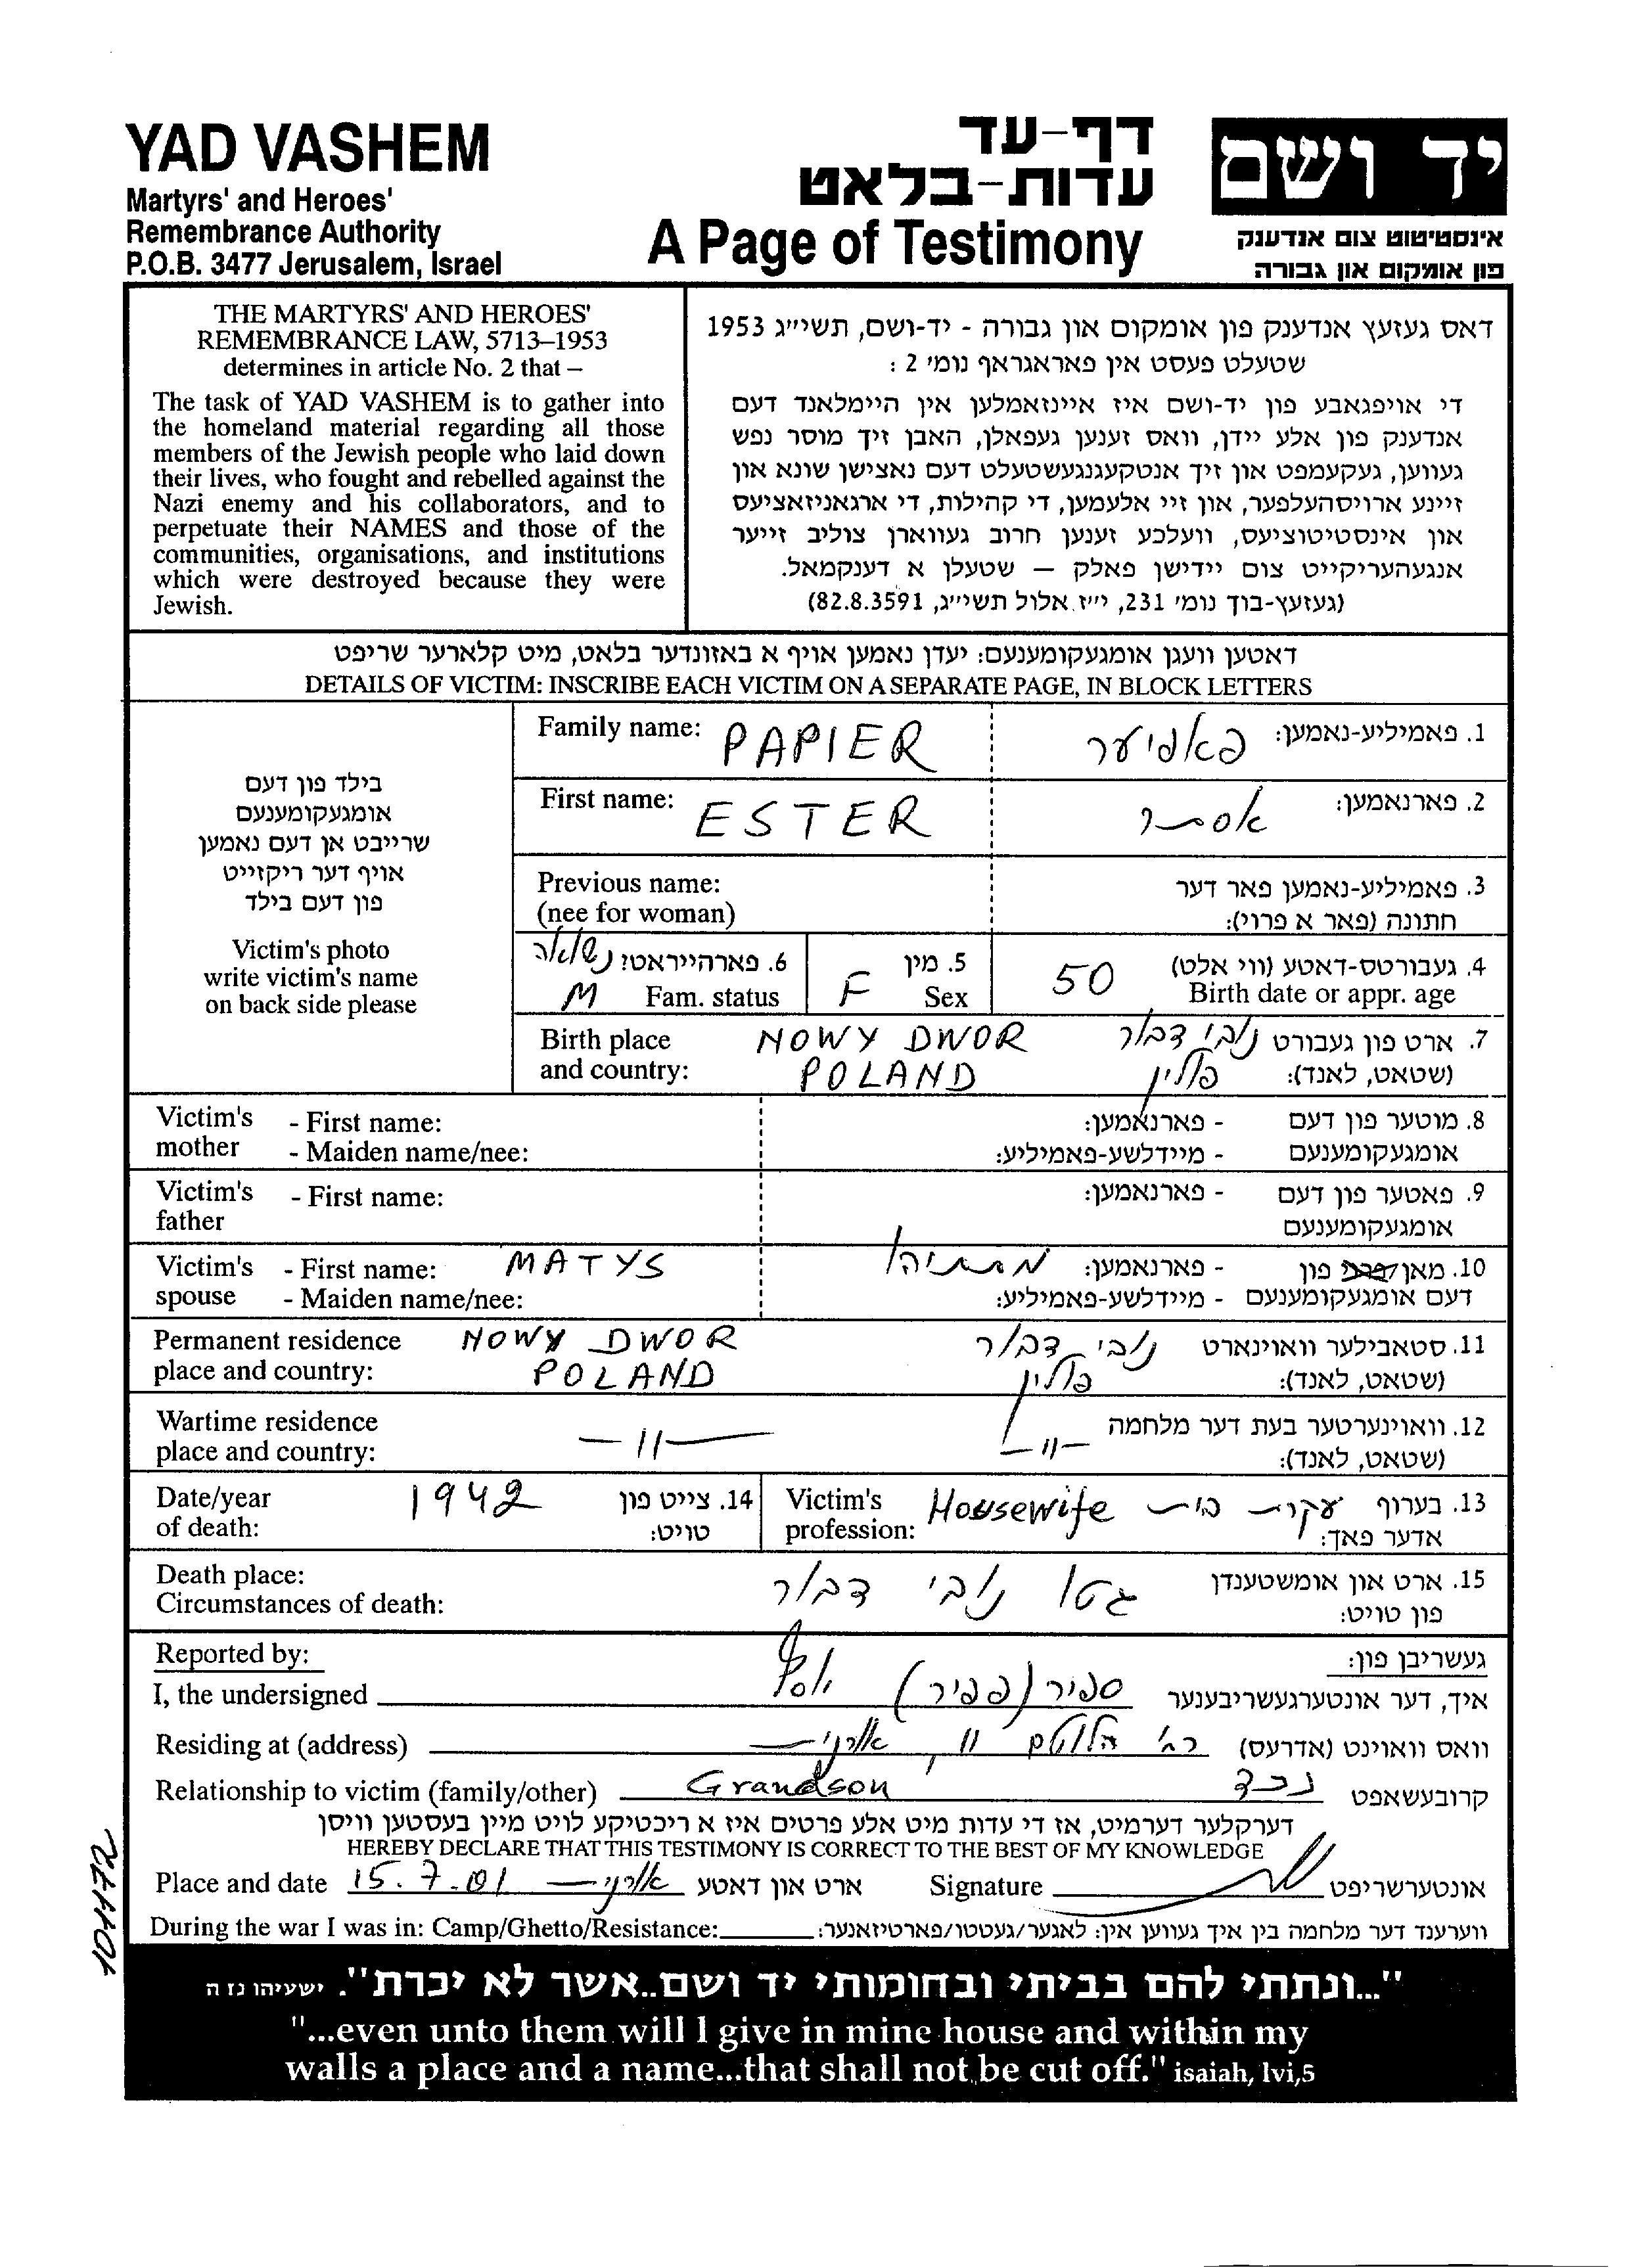 YAD VASHEM
Martyrs' and Heroes'
Remembrance Authority
P.O.B. 3477 Jerusalem, Israel
דף-עד
עדות-בלאט
A Page of Testimony
יד ושם
אינסטיטוט צום אנדענק
פון אומקום און גבורה
THE MARTYRS' AND HEROES'
REMEMBRANCE LAW, 5713–1953
determines in article No. 2 that –
The task of YAD VASHEM is to gather into
the homeland material regarding all those
members of the Jewish people who laid down
their lives, who fought and rebelled against the
Nazi enemy and his collaborators, and to
perpetuate their NAMES and those of the
communities, organisations, and institutions
which were destroyed because they were
Jewish.
דאס געזעץ אנדענק פון אומקום און גבורה - יד-ושם, תשי״ג 1953
שטעלט פעסט אין פאראגראף נומ׳ 2 :
די אויפגאבע פון יד-ושם איז איינזאמלען אין היימלאנד דעם
אנדענק פון אלע יידן, וואס זענען געפאלן, האבן זיך מוסר נפש
געווען, געקעמפט און זיך אנטקעגנגעשטעלט דעם נאצישן שונא און
זיינע ארויסהעלפער, און זיי אלעמען, די קהילות, די ארגאניזאציעס
און אינסטיטוציעס, וועלכע זענען חרוב געווארן צוליב זייער
אנגעהעריקייט צום יידישן פאלק — שטעלן א דענקמאל.
(געזעץ-בוך נומ׳ 132, י״ז אלול תשי״ג, 1953.8.28)
דאטען וועגן אומגעקומענעם: יעדן נאמען אויף א באזונדער בלאט, מיט קלארער שריפט
DETAILS OF VICTIM: INSCRIBE EACH VICTIM ON A SEPARATE PAGE, IN BLOCK LETTERS
בילד פון דעם
אומגעקומענעם
שרייבט אן דעם נאמען
אויף דער ריקזייט
פון דעם בילד
Victim's photo
write victim's name
on back side please
Family name: PAPIER פאפיער 1. פאמיליע-נאמען:
First name: ESTER אסתר 2. פארנאמען:
Previous name: 3. פאמיליע-נאמען פאר דער
(nee for woman) חתונה (פאר א פרוי):
נשואה 6. פארהייראט: 5. מין 4. געבורטס-דאטע (ווי אלט)
M Fam. status F Sex 50 Birth date or appr. age
Birth place NOWY DWOR נובי דבור 7. ארט פון געבורט
and country: POLAND פולין (שטאט, לאנד):
Victim's - First name: - פארנאמען: 8. מוטער פון דעם
mother - Maiden name/nee: - מיידלשע-פאמיליע: אומגעקומענעם
Victim's - First name: - פארנאמען: 9. פאטער פון דעם
father אומגעקומענעם
Victim's - First name: MATYS מתתיהו - פארנאמען: 10. מאן/פרוי פון
spouse - Maiden name/nee: - מיידלשע-פאמיליע: דעם אומגעקומענעם
Permanent residence NOWY DWOR נובי דבור 11. סטאבילער וואוינארט
place and country: POLAND פולין (שטאט, לאנד):
Wartime residence 12. וואוינערטער בעת דער מלחמה
place and country: —〃— —〃— (שטאט, לאנד):
Date/year 1942 14. צייט פון Victim's Housewife עקרת בית 13. בערוף
of death: טויט: profession: אדער פאך:
Death place: גטו נובי דבור 15. ארט און אומשטענדן
Circumstances of death: פון טויט:
Reported by: געשריבן פון:
I, the undersigned ספיר (פפיר) יוסף איך, דער אונטערגעשריבענער
Residing at (address) 11 וואס וואוינט (אדרעס)
Relationship to victim (family/other) Grandson נכד קרובעשאפט
דערקלער דערמיט, אז די עדות מיט אלע פרטים איז א ריכטיקע לויט מיין בעסטען וויסן
HEREBY DECLARE THAT THIS TESTIMONY IS CORRECT TO THE BEST OF MY KNOWLEDGE
Place and date 15.7.01 ארט און דאטע Signature אונטערשריפט
During the war I was in: Camp/Ghetto/Resistance: ווערענד דער מלחמה בין איך געווען אין: לאגער/געטטו/פארטיזאנער:
101172
"...ונתתי להם בביתי ובחומותי יד ושם..אשר לא יכרת". ישעיהו נז ה
"...even unto them will I give in mine house and within my
walls a place and a name...that shall not be cut off." isaiah, lvi,5